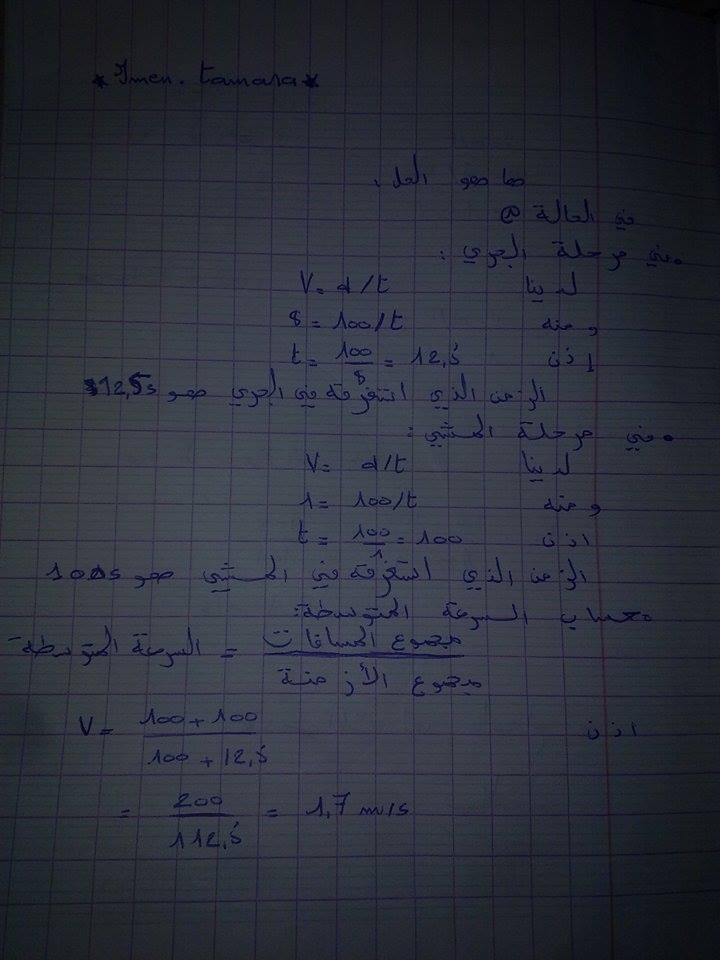 * Imen. tamara *
ها هو الحل.
في الحالة @
• في مرحلة الجري :
لدينا V = d/t
ومنه 8 = 100/t
إذن t = 100/8 = 12,5
الزمن الذي استغرقه في الجري هو 12,5s
• في مرحلة المشي :
لدينا V = d/t
ومنه 1 = 100/t
اذن t = 100/1 = 100
الزمن الذي استغرقه في المشي هو 100s
• حساب السرعة المتوسطة:
السرعة المتوسطة = مجموع المسافات / مجموع الأزمنة
اذن V = 100 + 100 / 100 + 12,5
= 200 / 112,5 = 1,7 m/s